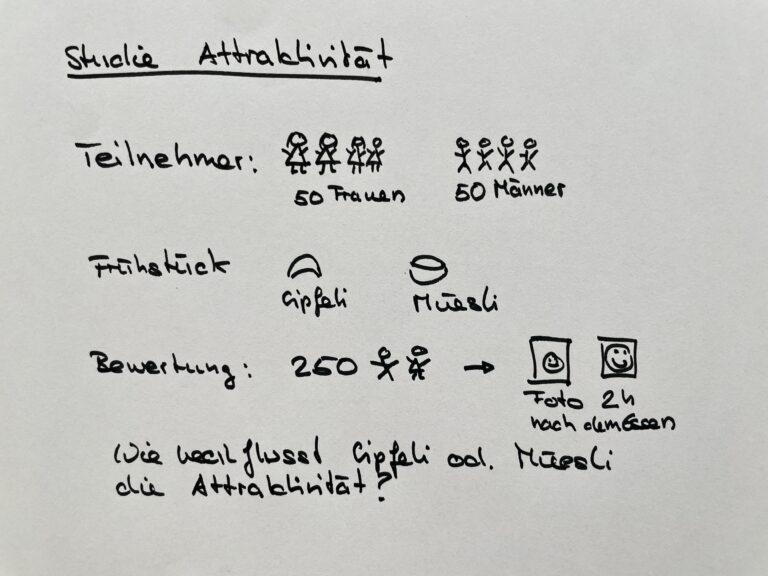 Studie Attraktivität
Teilnehmer:
50 Frauen 50 Männer
Frühstück
Gipfeli Müesli
Bewertung: 250 →
Foto 2h
nach dem Essen
Wie beeinflusst Gipfeli od. Müesli
die Attraktivität?